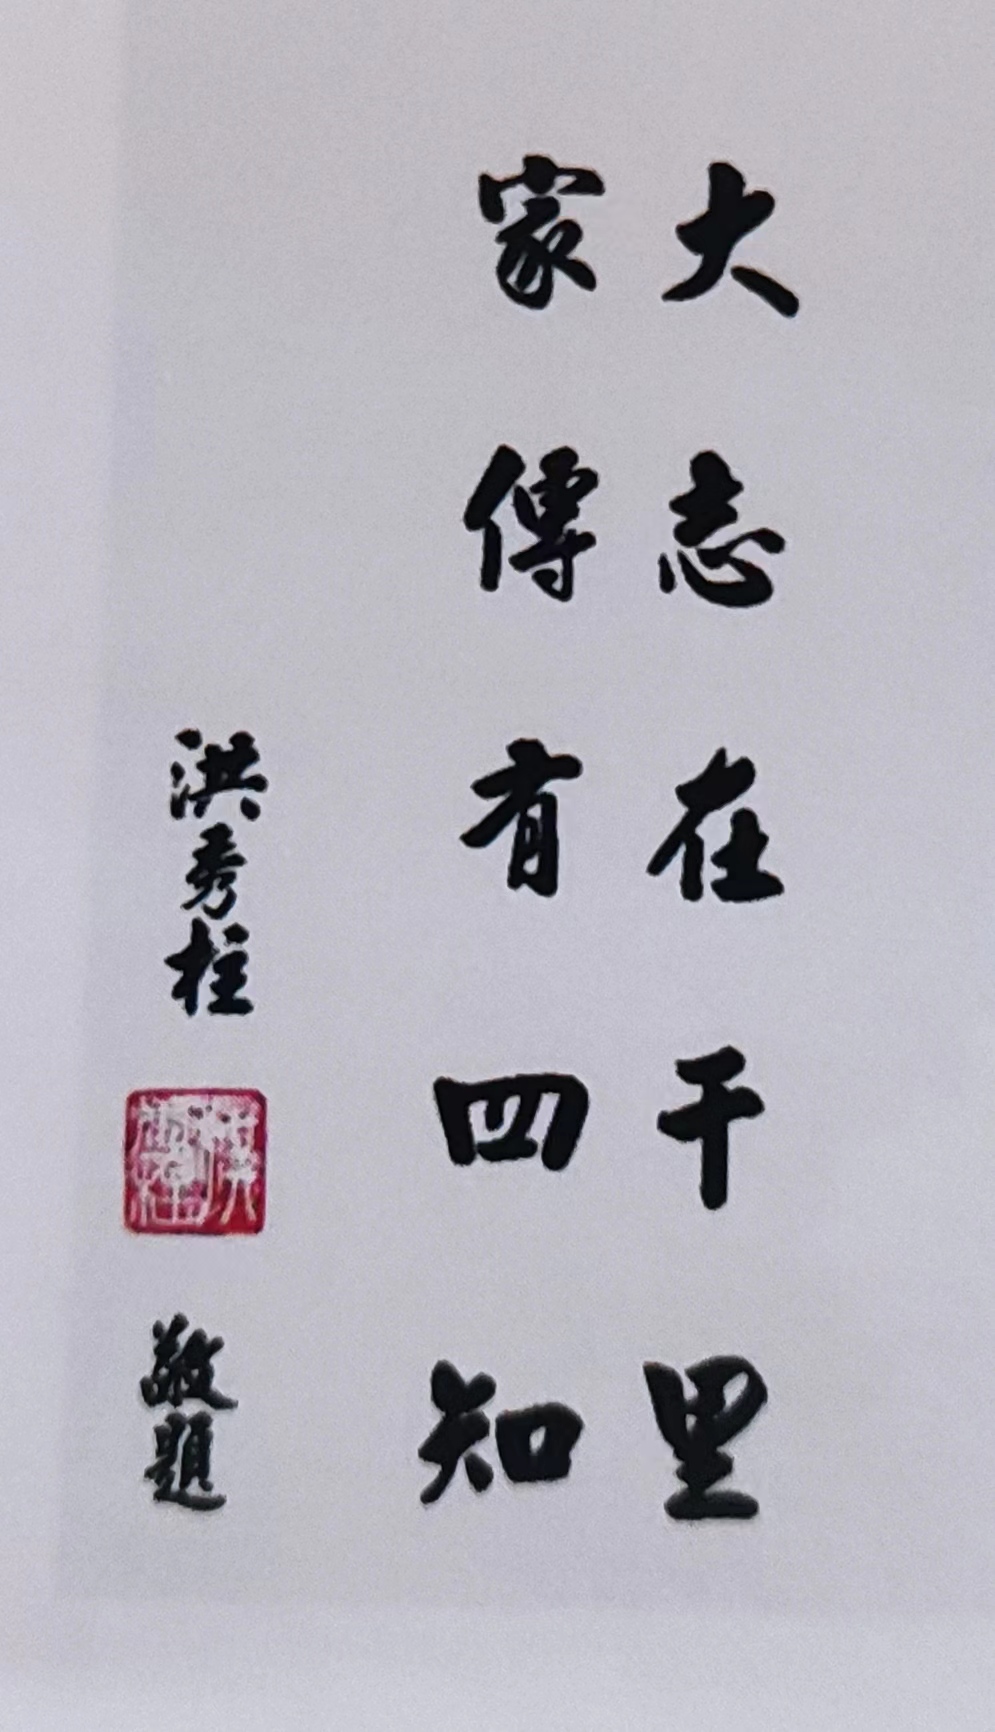 大志在千里
家傳有四知
洪秀柱
洪秀柱
敬題